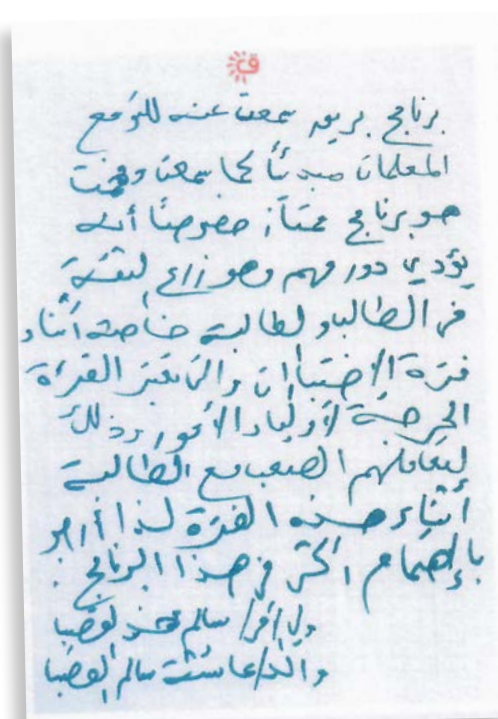 ق
برنامج بريق سمعت عنه للتو مع
المعلمات مبدئاً كما سمعت وفهمت
هو برنامج ممتاز خصوصاً أنه
يؤدي دور مهم وهو زرع الثقة
في الطالب والطالبة خاصة أثناء
فترة الإختبارات والتي تعتبر الفترة
الحرجة لأولياء الأمور وذلك
لتعاملهم الصعب مع الطالبة
أثناء هذه الفترة لذا أرجو
بالإهتمام اكثر في هذا البرنامج .
سالم محمد
والد / سالم